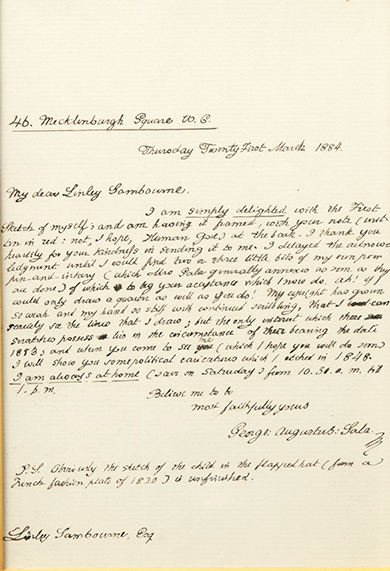 46. Mecklinburgh Square W. C.
Thursday Twenty First March 1884.
My dear Linley Sambourne.
I am simply delighted with the First
Sketch of myself: and am having it framed, with your note (writ-
ten in red: not, I hope, Human Gore) at the back. I thank you
heartily for your kindness in sending it to me. I delayed the acknow-
ledgment until I could find two or three little bits of my own pro-
pen-and-inkery (which Mrs Sala generally annexes as soon as they
are done) of which to beg your acceptance which I now do. Ah! if I
could only draw a quarter as well as you do! My eyesight has grown
so weak and my hand so stiff with continual scribbling, that I can
scarcely see the lines that I draw; but the only interest which these
scratches possess lies in the circumstance of their bearing the date
1883; and when you come to see me (which I hope you will do soon)
I will show you some political caricatures which I etched in 1848.
I am always at home (save on Saturday) from 10.30. a. m. till
1. p. m.
Believe me to be
most faithfully yours
George: Augustus: Sala.
P.S. Obviously the sketch of the child in the flapped hat (from a
French fashion plate of 1820) is unfinished.
Linley Sambourne, Esq